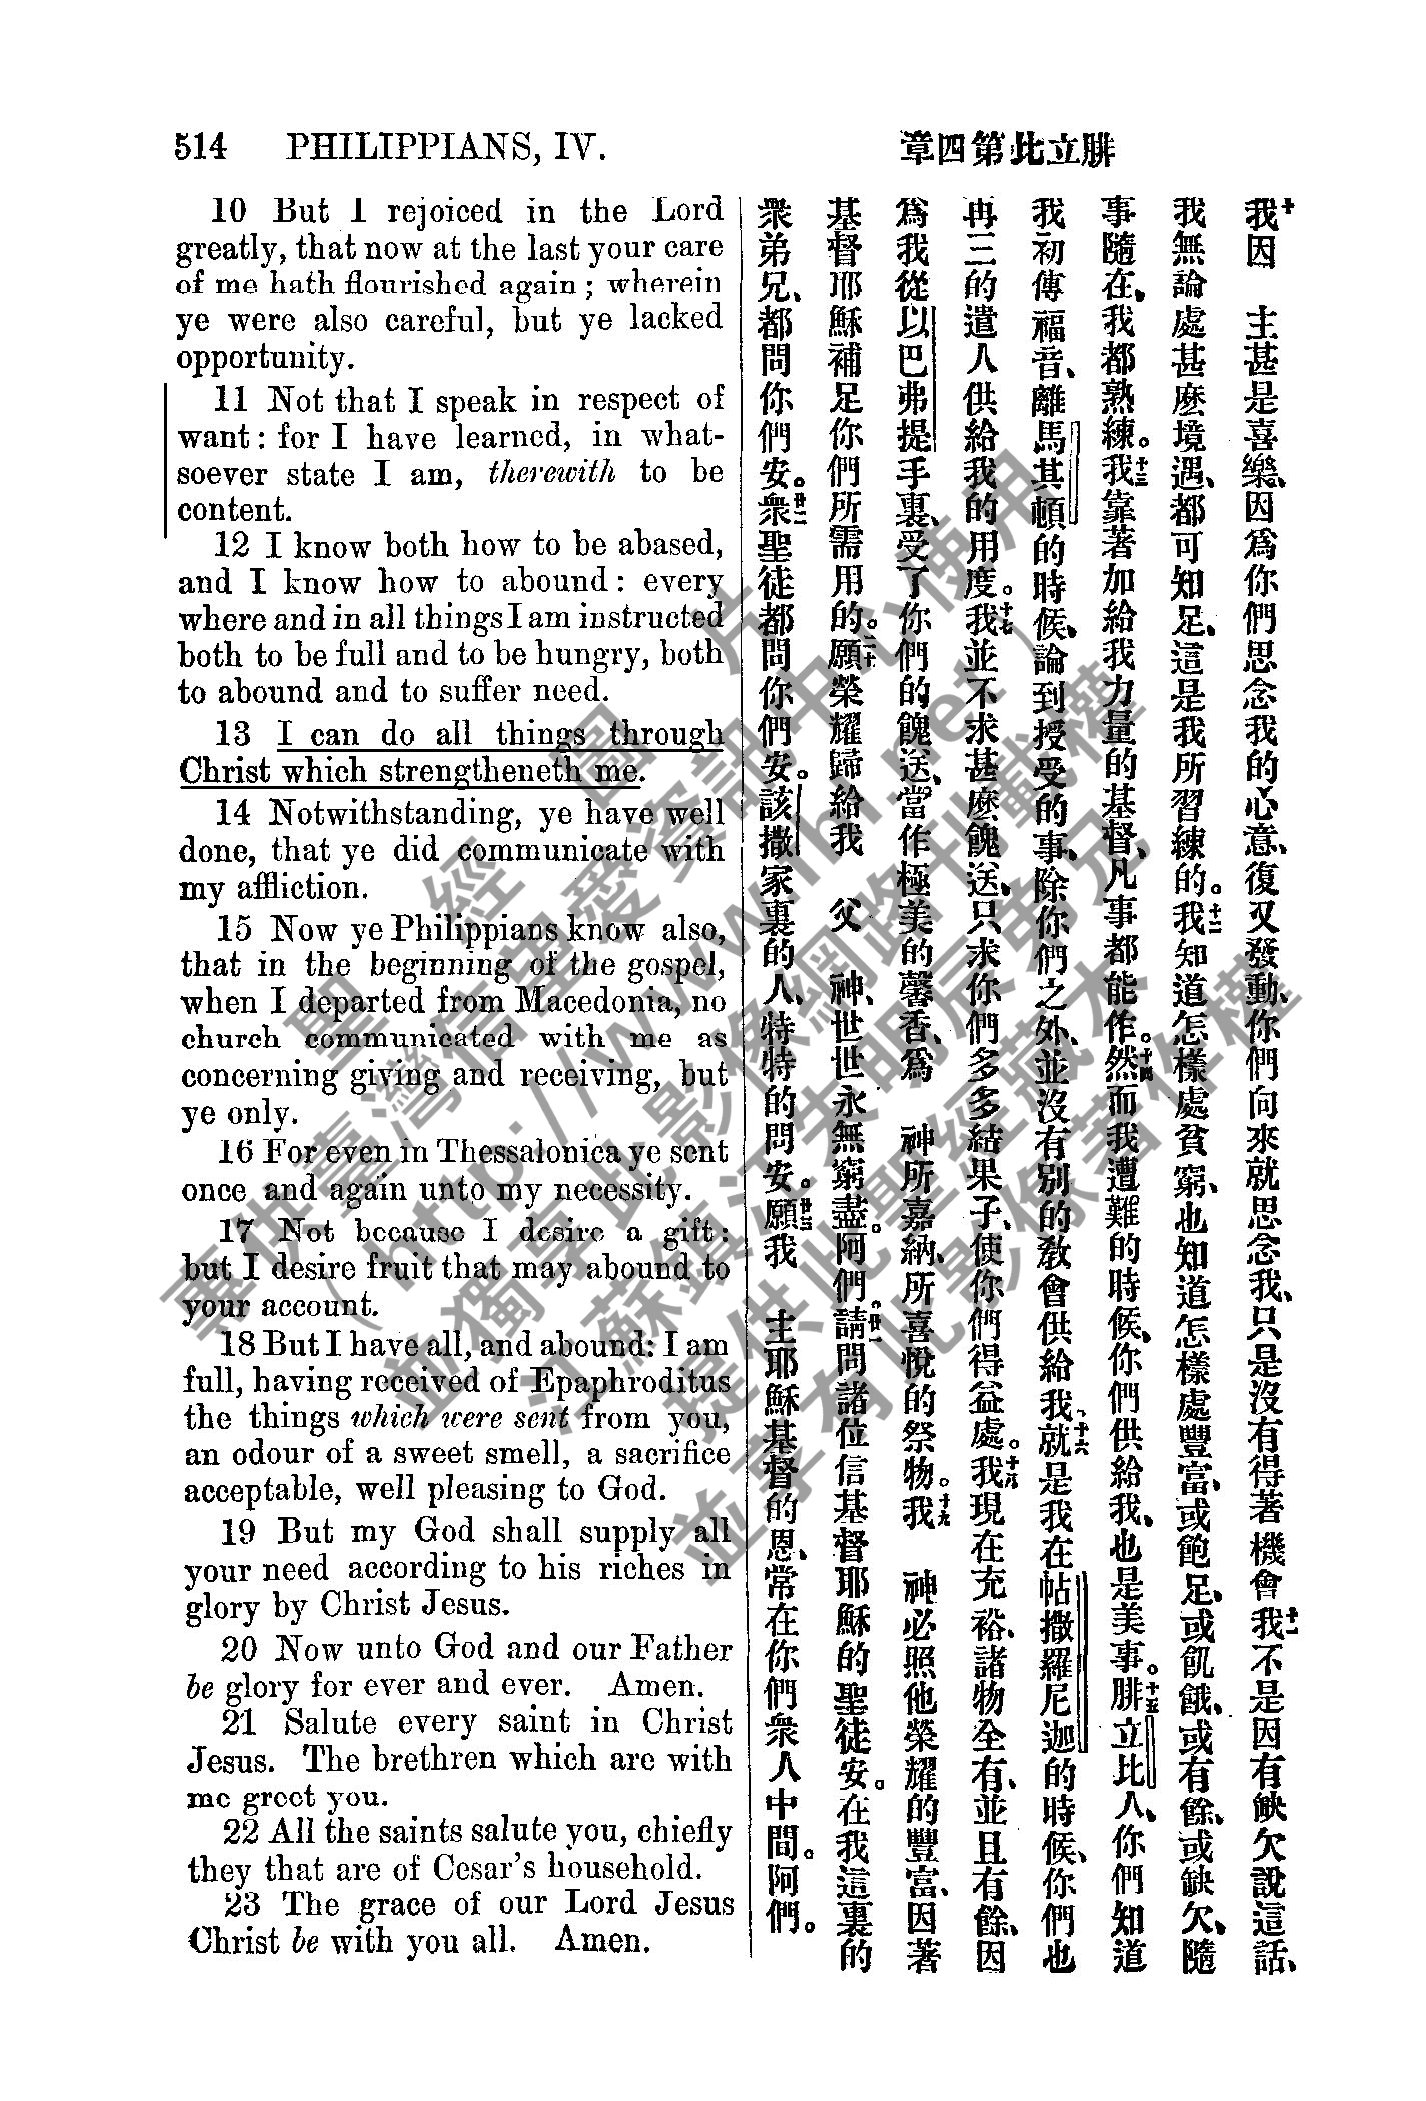 514 PHILIPPIANS, IV.
章四第比立腓
10 But I rejoiced in the Lord
greatly, that now at the last your care
of me hath flourished again; wherein
ye were also careful, but ye lacked
opportunity.
11 Not that I speak in respect of
want: for I have learned, in what-
soever state I am, therewith to be
content.
12 I know both how to be abased,
and I know how to abound: every
where and in all things I am instructed
both to be full and to be hungry, both
to abound and to suffer need.
13 I can do all things through
Christ which strengtheneth me.
14 Notwithstanding, ye have well
done, that ye did communicate with
my affliction.
15 Now ye Philippians know also,
that in the beginning of the gospel,
when I departed from Macedonia, no
church communicated with me as
concerning giving and receiving, but
ye only.
16 For even in Thessalonica ye sent
once and again unto my necessity.
17 Not because I desire a gift:
but I desire fruit that may abound to
your account.
18 But I have all, and abound: I am
full, having received of Epaphroditus
the things which were sent from you,
an odour of a sweet smell, a sacrifice
acceptable, well pleasing to God.
19 But my God shall supply all
your need according to his riches in
glory by Christ Jesus.
20 Now unto God and our Father
be glory for ever and ever. Amen.
21 Salute every saint in Christ
Jesus. The brethren which are with
me greet you.
22 All the saints salute you, chiefly
they that are of Cesar's household.
23 The grace of our Lord Jesus
Christ be with you all. Amen.
十我因 主甚是喜樂、因爲你們思念我的心意、復又發動、你們向來就思念我、只是沒有得著機會十一我不是因有缺欠說這話、
我無論處甚麽境遇、都可知足、這是我所習練的。十二我知道怎樣處貧窮、也知道怎樣處豐富、或飽足、或飢餓、或有餘、或缺欠、隨
事隨在、我都熟練。十三我靠著加給我力量的基督、凡事都能作。十四然而我遭難的時候、你們供給我、也是美事。十五腓立比人、你們知道
我初傳福音、離馬其頓的時候、論到授受的事、除你們之外、並沒有別的敎會供給我、十六就是我在帖撒羅尼迦的時候、你們也
再三的遣人供給我的用度。十七我並不求甚麽餽送、只求你們多多結果子、使你們得益處。十八我現在充裕、諸物全有、並且有餘、因
爲我從以巴弗提手裏、受了你們的餽送、當作極美的馨香、爲 神所嘉納、所喜悅的祭物。十九我 神必照他榮耀的豐富、因著
基督耶穌補足你們所需用的。二十願榮耀歸給我 父 神、世世永無窮盡。阿們。廿一請問諸位信基督耶穌的聖徒安。在我這裏的
衆弟兄、都問你們安。廿二衆聖徒都問你們安。該撒家裏的人、特特的問安。廿三願我 主耶穌基督的恩、常在你們衆人中間。阿們。
聖經圖片
專供臺灣信望愛資訊中心使用
(http://www.fhl.net)
並獨享此影像網路刊載權
江蘇鎮江朱明辰弟兄
提供此聖經藏本
並享有此影像著作權